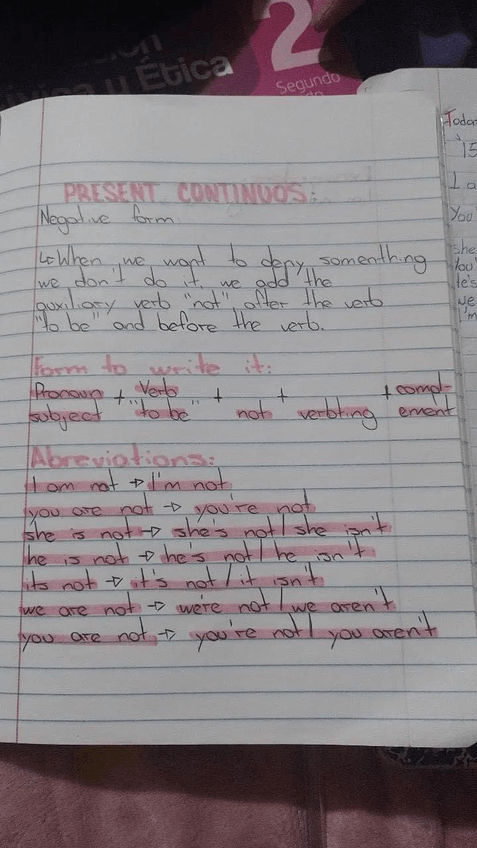 2
Ética
Segundo
PRESENT CONTINUOS:
Negative form
↳When we want to deny somenthing
we don't do it, we add the
auxiliary verb "not" after the verb
"to be" and before the verb.
Form to write it:
Pronoun + Verb + + + compl-
subject "to be" not verbting ement
Abreviations:
I am not → I'm not
you are not → you're not
she is not → she's not / she isn't
he is not → he's not / he isn't
its not → it's not / it isn't
we are not → we're not / we aren't
you are not → you're not / you aren't
15
I a
You
she
You'
le's
we
I'm